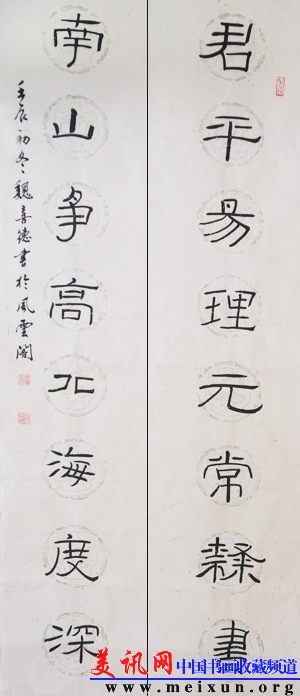 君平易理元常隸書
南山争高北海度深
壬辰初冬魏喜德書於風雲閣
美讯网 中国书画收藏频道
www.meixun.org